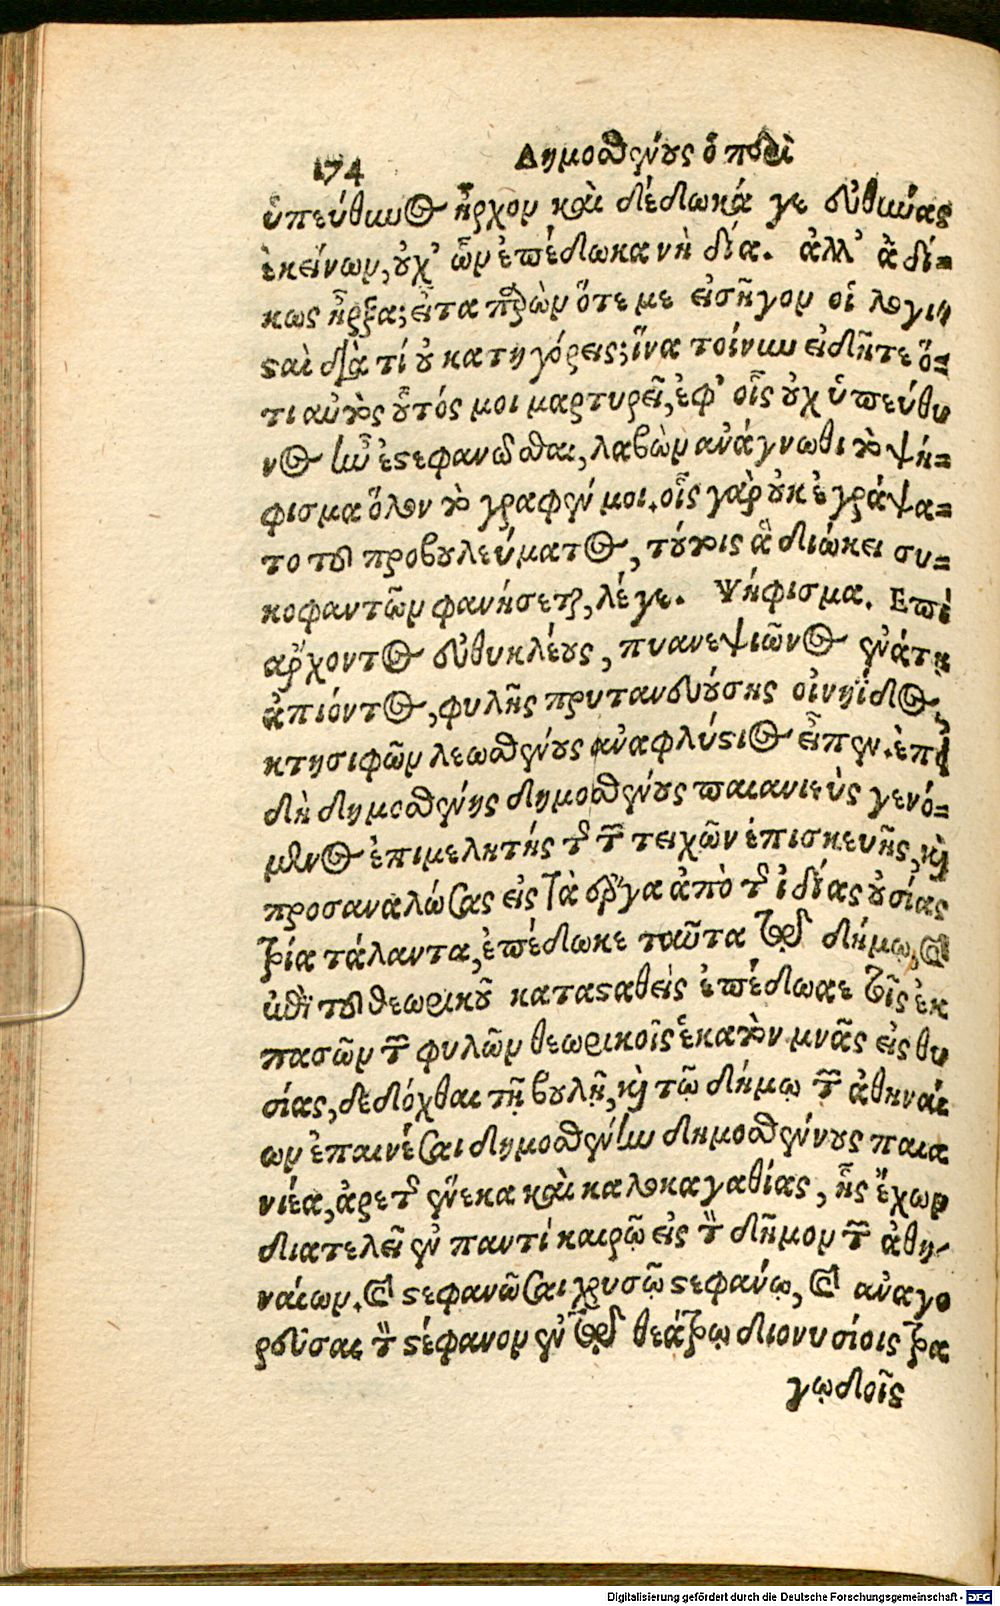 174 Δημοσθένους ὁ περὶ
ὑπεύθυνος ἦρχον καὶ δέδωκά γε εὐθύνας
ἐκείνων, οὐχ' ὧν ἐπέδωκα νὴ δία. ἀλλ' ἀδί-
κως ἦρξα; εἶτα παρὼν ὅτε με εἰσῆγον οἱ λογι
σαὶ διὰ τί οὐ κατηγόρεις; ἵνα τοίνυν εἰδῆτε ὅ-
τι αὐτὸς οὗτός μοι μαρτυρεῖ, ἐφ' οἷς οὐχ ὑπεύθυ
νος ἦν ἐστεφανῶσθαι, λαβὼν ἀνάγνωθι τὸ ψή-
φισμα ὅλον τὸ γραφέν μοι. οἷς γὰρ οὐκ ἐγράψα-
το τοῦ προβουλεύματος, τούτοις ἃ διώκει συ-
κοφαντῶν φανήσεται, λέγε. Ψήφισμα. Επὶ
ἄρχοντος εὐθυκλέους, πυανεψιῶνος ἐνάτῃ
ἀπιόντος, φυλῆς πρυτανευούσης οἰνηΐδος,
κτησιφῶν λεωσθένους ἀναφλύστιος εἶπεν. ἐπε
δὴ δημοσθένης δημοσθένους παιανιεὺς γενό-
μενος ἐπιμελητής τῆς τῶν τειχῶν ἐπισκευῆς, καὶ
προσαναλώσας εἰς τὰ ἔργα ἀπὸ τῆς ἰδίας οὐσίας
τρία τάλαντα, ἐπέδωκε ταῦτα τῷ δήμῳ, καὶ
ἐπὶ τοῦ θεωρικοῦ κατασταθεὶς ἐπέδωκε τοῖς ἐκ
πασῶν τῶν φυλῶν θεωρικοῖς ἑκατὸν μνᾶς εἰς θυ
σίας, δεδόχθαι τῇ βουλῇ, καὶ τῷ δήμῳ τῶν ἀθηναί
ων ἐπαινέσαι δημοσθένην δημοσθένους παια
νιέα, ἀρετῆς ἕνεκα καὶ καλοκαγαθίας, ἧς ἔχων
διατελεῖ ἐν παντί καιρῷ εἰς τὸν δῆμον τῶν ἀθη-
ναίων. καὶ στεφανῶσαι χρυσῷ στεφάνῳ, καὶ ἀναγο
ρεῦσαι τὸν στέφανον ἐν τῷ θεάτρῳ διονυσίοις τρα
γῳδοῖς
Digitalisierung gefördert durch die Deutsche Forschungsgemeinschaft - DFG